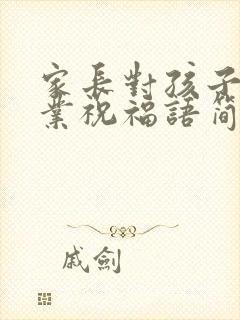 家長對孩子
業祝福語簡
戚劍